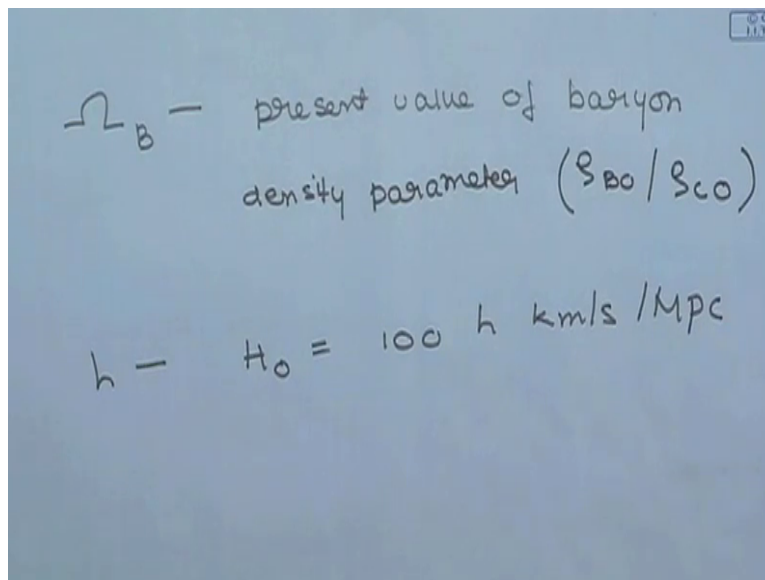 Ω_B - present value of baryon
density parameter (ρ_B0 / ρ_C0)
h - H_0 = 100 h km/s /Mpc